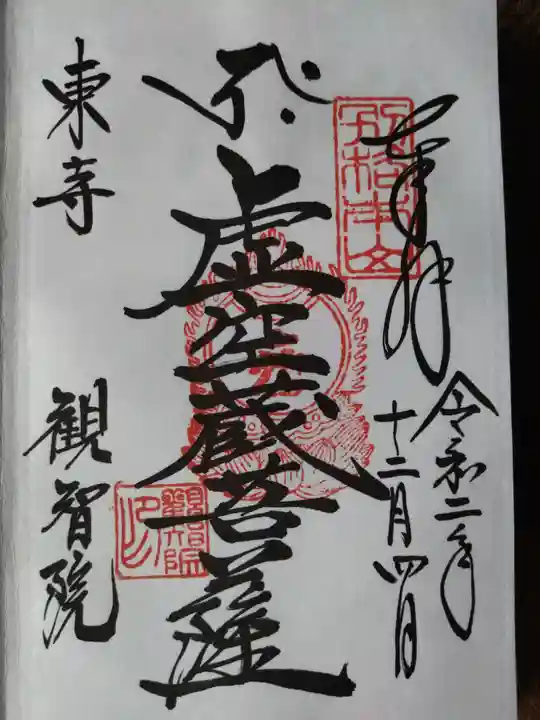 奉拝
令和二年
十二月四日
虚空蔵菩薩
東寺
観智院
別格本山
観智院印